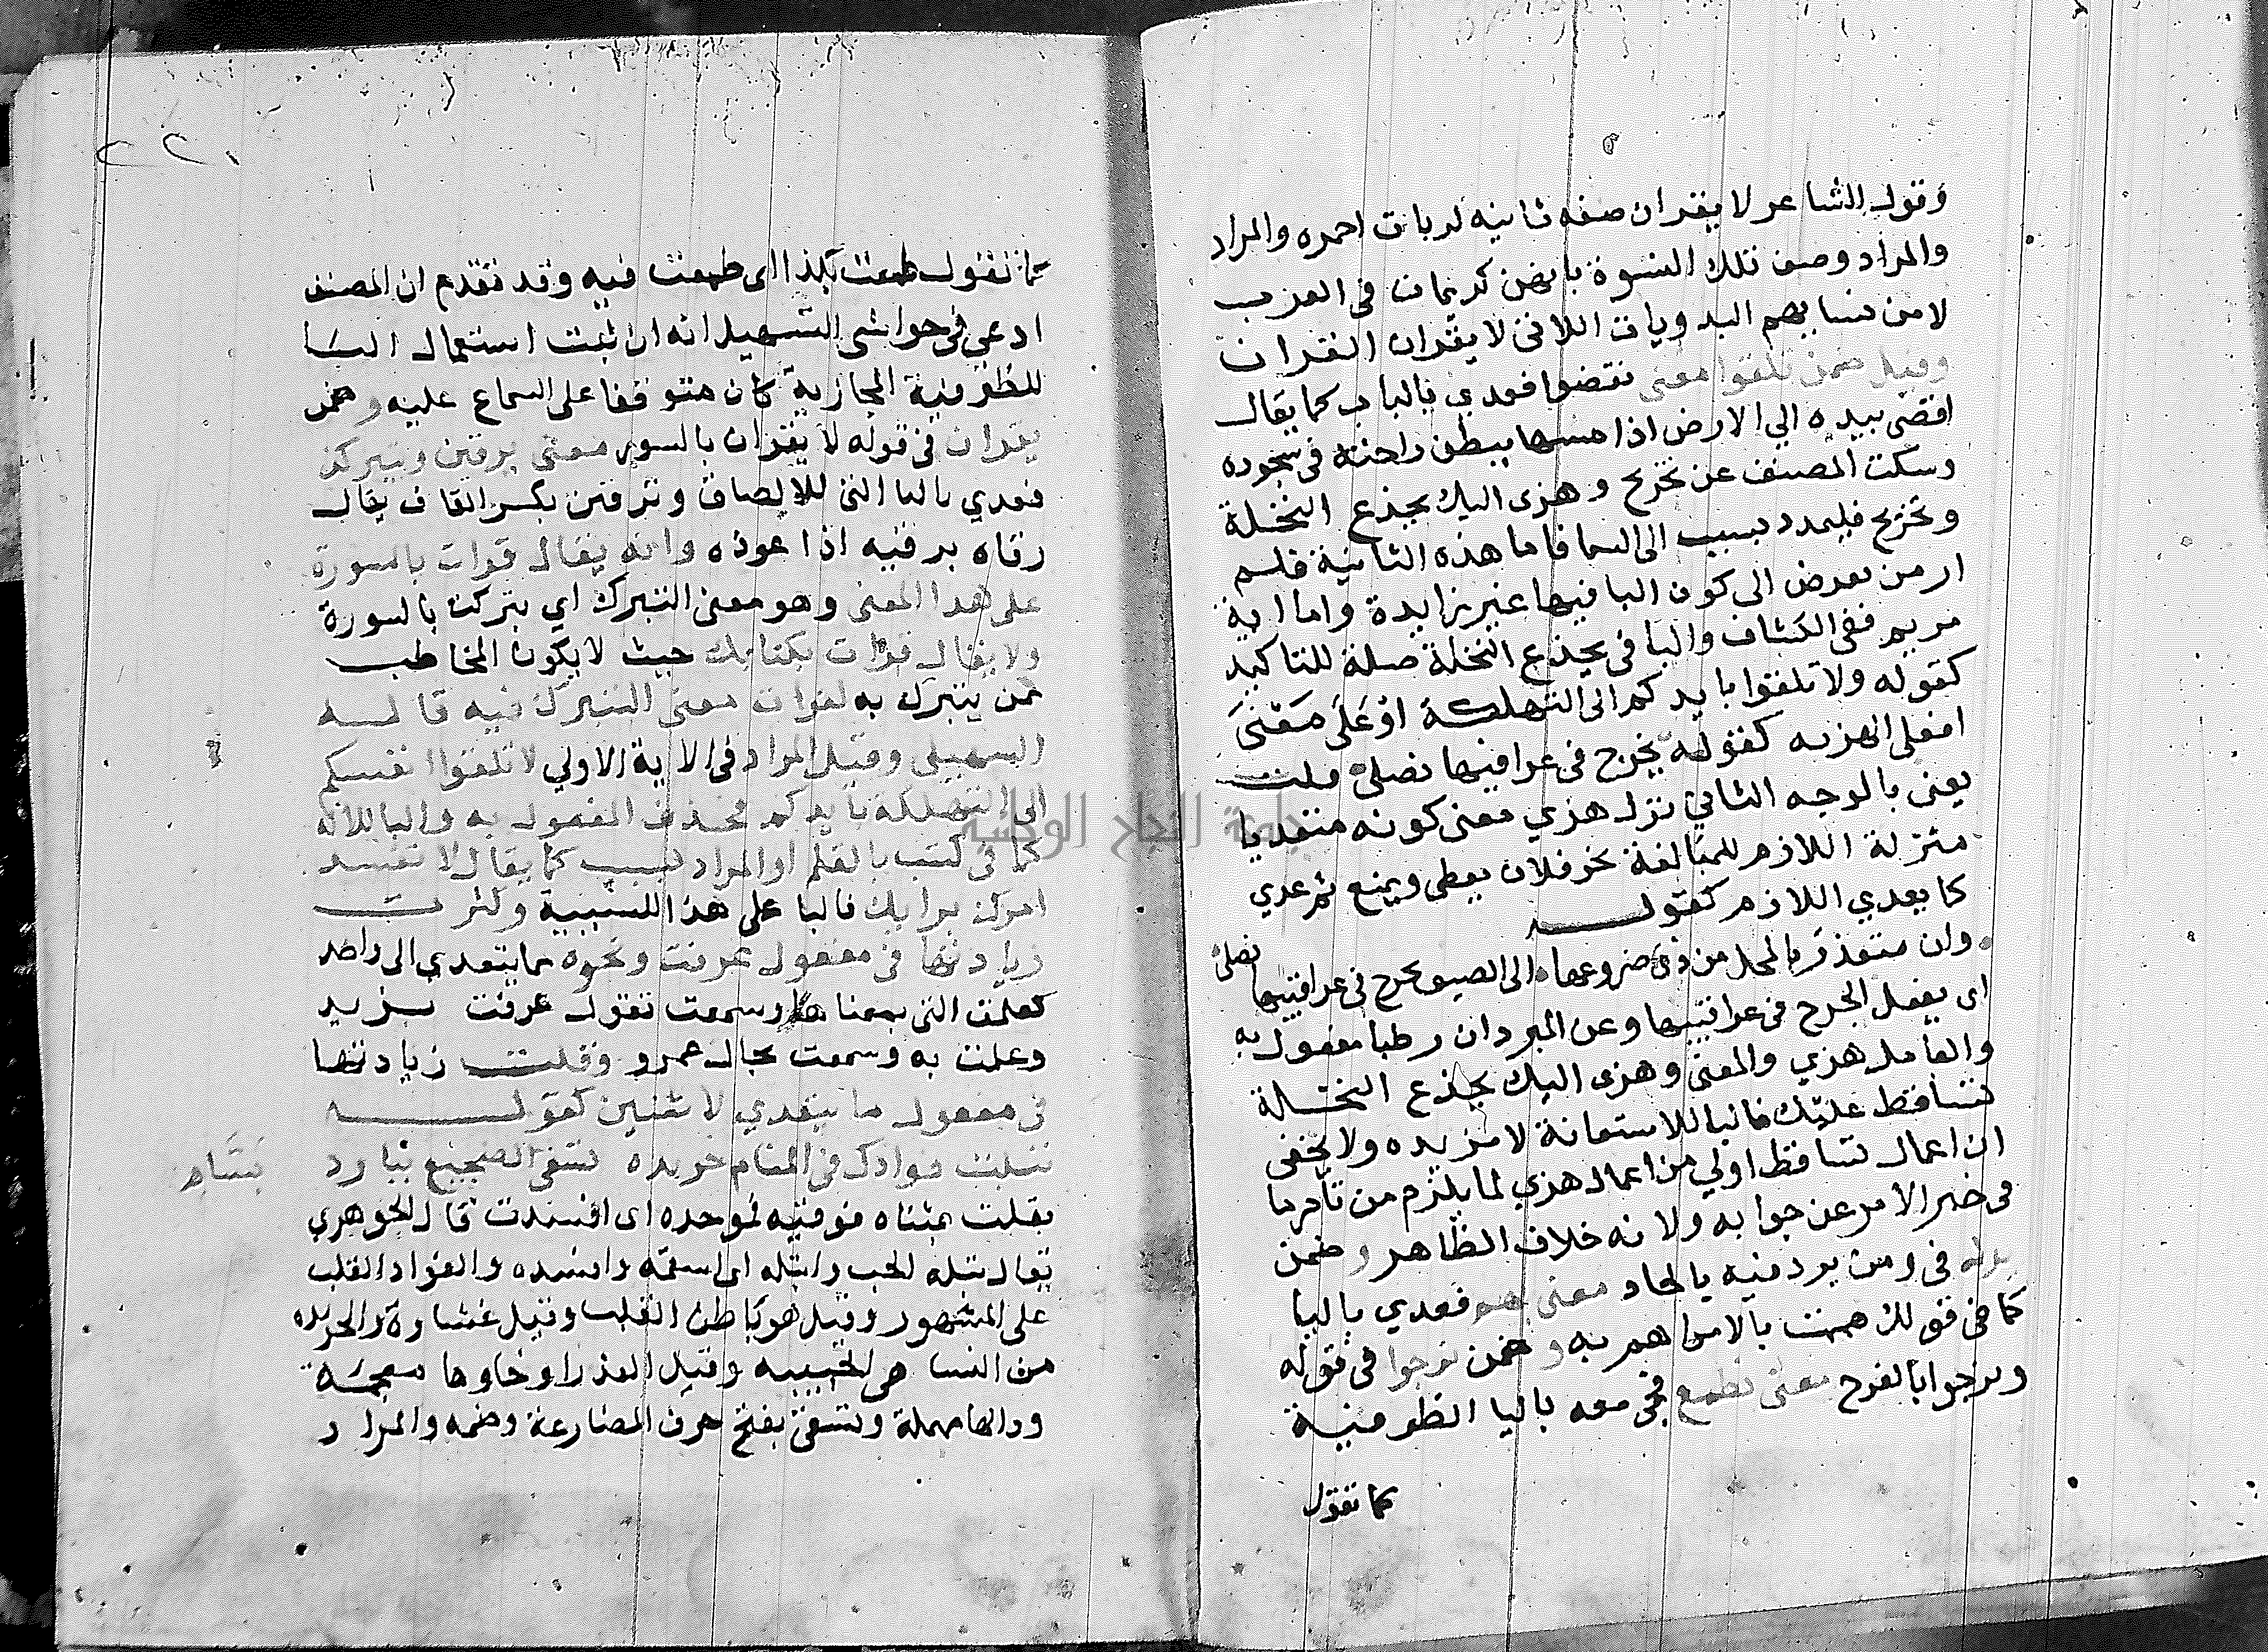 وقول الشاعر لا يقران صفه ثانيه لربات احمره والمراد
والمراد وصف تلك النسوة بانهن كريمات في العرب
لا من نسايهم البدويات اللاتي لا يقران القران
وقيل ضمن تلقوا معنى تفضوا فعدي بالبا كما يقال
افضى بيده الي الارض اذا مسها ببطن راحته في سجوده
وسكت المصنف عن تخريج وهزى اليك بجذع النخلة
وتخريج فليمدد بسبب الى السما فاما هذه الثانية فلم
ار من تعرض الى كون البا فيها غير زايدة واما اية
مريم ففي الكشاف والبا في بجذع النخلة صلة للتاكيد
كقوله ولا تلقوا بايدكم الى التهلكة او على معنى
افعلى الهز به كقوله يجرح في عراقيبها نصلى قلت
يعنى بالوجه الثاني نزل هزي معنى كونه متعديا
منزلة اللازم للمبالغة نحو فلان يعطى ويمنع ثم عدي
كما يعدي اللازم كقول
وان تعتذر بالمحل من ذى ضروعها الى الضيف يجرح في عراقيبها نصلى
اى يفعل الجرح في عراقيبها وعن المبرد ان رطبا مفعول به
والعامل هزي والمعنى وهزى اليك بجذع النخلة
تساقط عليك فالبا للاستعانة لا مزيده ولا يخفى
ان اعمال تساقط اولي من اعمال هزي لما يلزم من تاخر ما
في خبر الامر عن جوابه ولانه خلاف الظاهر وضمن
يرد في ومن يرد فيه بالحاد معنى يهم فعدي بالبا
كما في قولك هممت بالامر اهم به وضمن نرجوا في قوله
ونرجوا بالفرج معنى نطمع فجي معه بالبا الظرفية
كما تقول
٢٢٠
كما تقول طمعت بكذا اى طمعت فيه وقد تقدم ان المصنف
ادعى في حواشى التسهيل انه ان ثبت استعمال البا
للظرفية المجازية كان متوقفا على السماع عليه وضمن
يقران في قوله لا يقران بالسور معنى يرقين ويتبركن
فعدي بالبا التى للالصاق ويرقين بكسر القاف يقال
رقاه يرقيه اذا عوذه وانه يقال قرات بالسورة
على هذا المعنى وهو معنى التبرك اي تبركت بالسورة
ولا يقال قرات بكتابك حيث لا يكون المخاطب
ممن يتبرك به لفوات معنى التبرك فيه قاله
السهيلى وقيل المراد في الاية الاولي لا تلقوا انفسكم
الى التهلكة بايدكم فحذف المفعول به والبا للالة
كما في كتبت بالقلم او المراد بسبب كما يقال لا تفسد
امرك برايك فالبا على هذا للسببية وكثرت
زيادتها في مفعول عرفت ونحوه مما يتعدي الى واحد
كعلمت التى بمعناها وسمعت تقول عرفت بزيد
وعلمت به وسمعت بحال عمرو وقلت زيادتها
في مفعول ما يتعدي لاثنين كقوله
تبلت فوادك في المنام خريده تسقى الضجيع ببارد بسام
تبلت بمثناه فوقيه فموحده اى افسدت قال الجوهري
يقال تبله الحب واتبله اى اسقمه وافسده والفواد القلب
على المشهور وقيل هو باطن القلب وقيل غشاوة والخريده
من النسا هى الحييه وقيل العذرا وخاوها معجمة
ودالها مهملة وتسقى بفتح حرف المضارعة وضمه والمراد
جامعة النجاح الوطنية